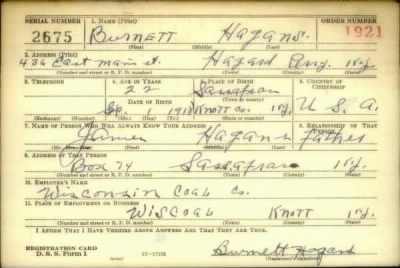 SERIAL NUMBER 1. NAME (Print) ORDER NUMBER
2675 Burnett Hagans. 1921
(First) (Middle) (Last)
2. ADDRESS (Print)
436 East main st. Hazard Ky.
(Number and street or R. F. D. number) (Town) (County) (State)
3. TELEPHONE 4. AGE IN YEARS 5. PLACE OF BIRTH 6. COUNTRY OF CITIZENSHIP
22 Sassafras
(Town or county)
DATE OF BIRTH
1 1918 Knott Co Ky. U. S. A.
(Exchange) (Number) (Mo.) (Day) (Yr.) (State or country)
7. NAME OF PERSON WHO WILL ALWAYS KNOW YOUR ADDRESS 8. RELATIONSHIP OF THAT PERSON
James Hagans Father
(Mr., Mrs., Miss) (First) (Middle) (Last)
9. ADDRESS OF THAT PERSON
Box 74 Sassafras Ky.
(Number and street or R. F. D. number) (Town) (County) (State)
10. EMPLOYER'S NAME
Wisconsin Coal Co.
11. PLACE OF EMPLOYMENT OR BUSINESS
Wiscoal Knott Ky.
(Number and street or R. F. D. number) (Town) (County) (State)
I AFFIRM THAT I HAVE VERIFIED ABOVE ANSWERS AND THAT THEY ARE TRUE.
REGISTRATION CARD
D. S. S. Form 1 Burnett Hogans